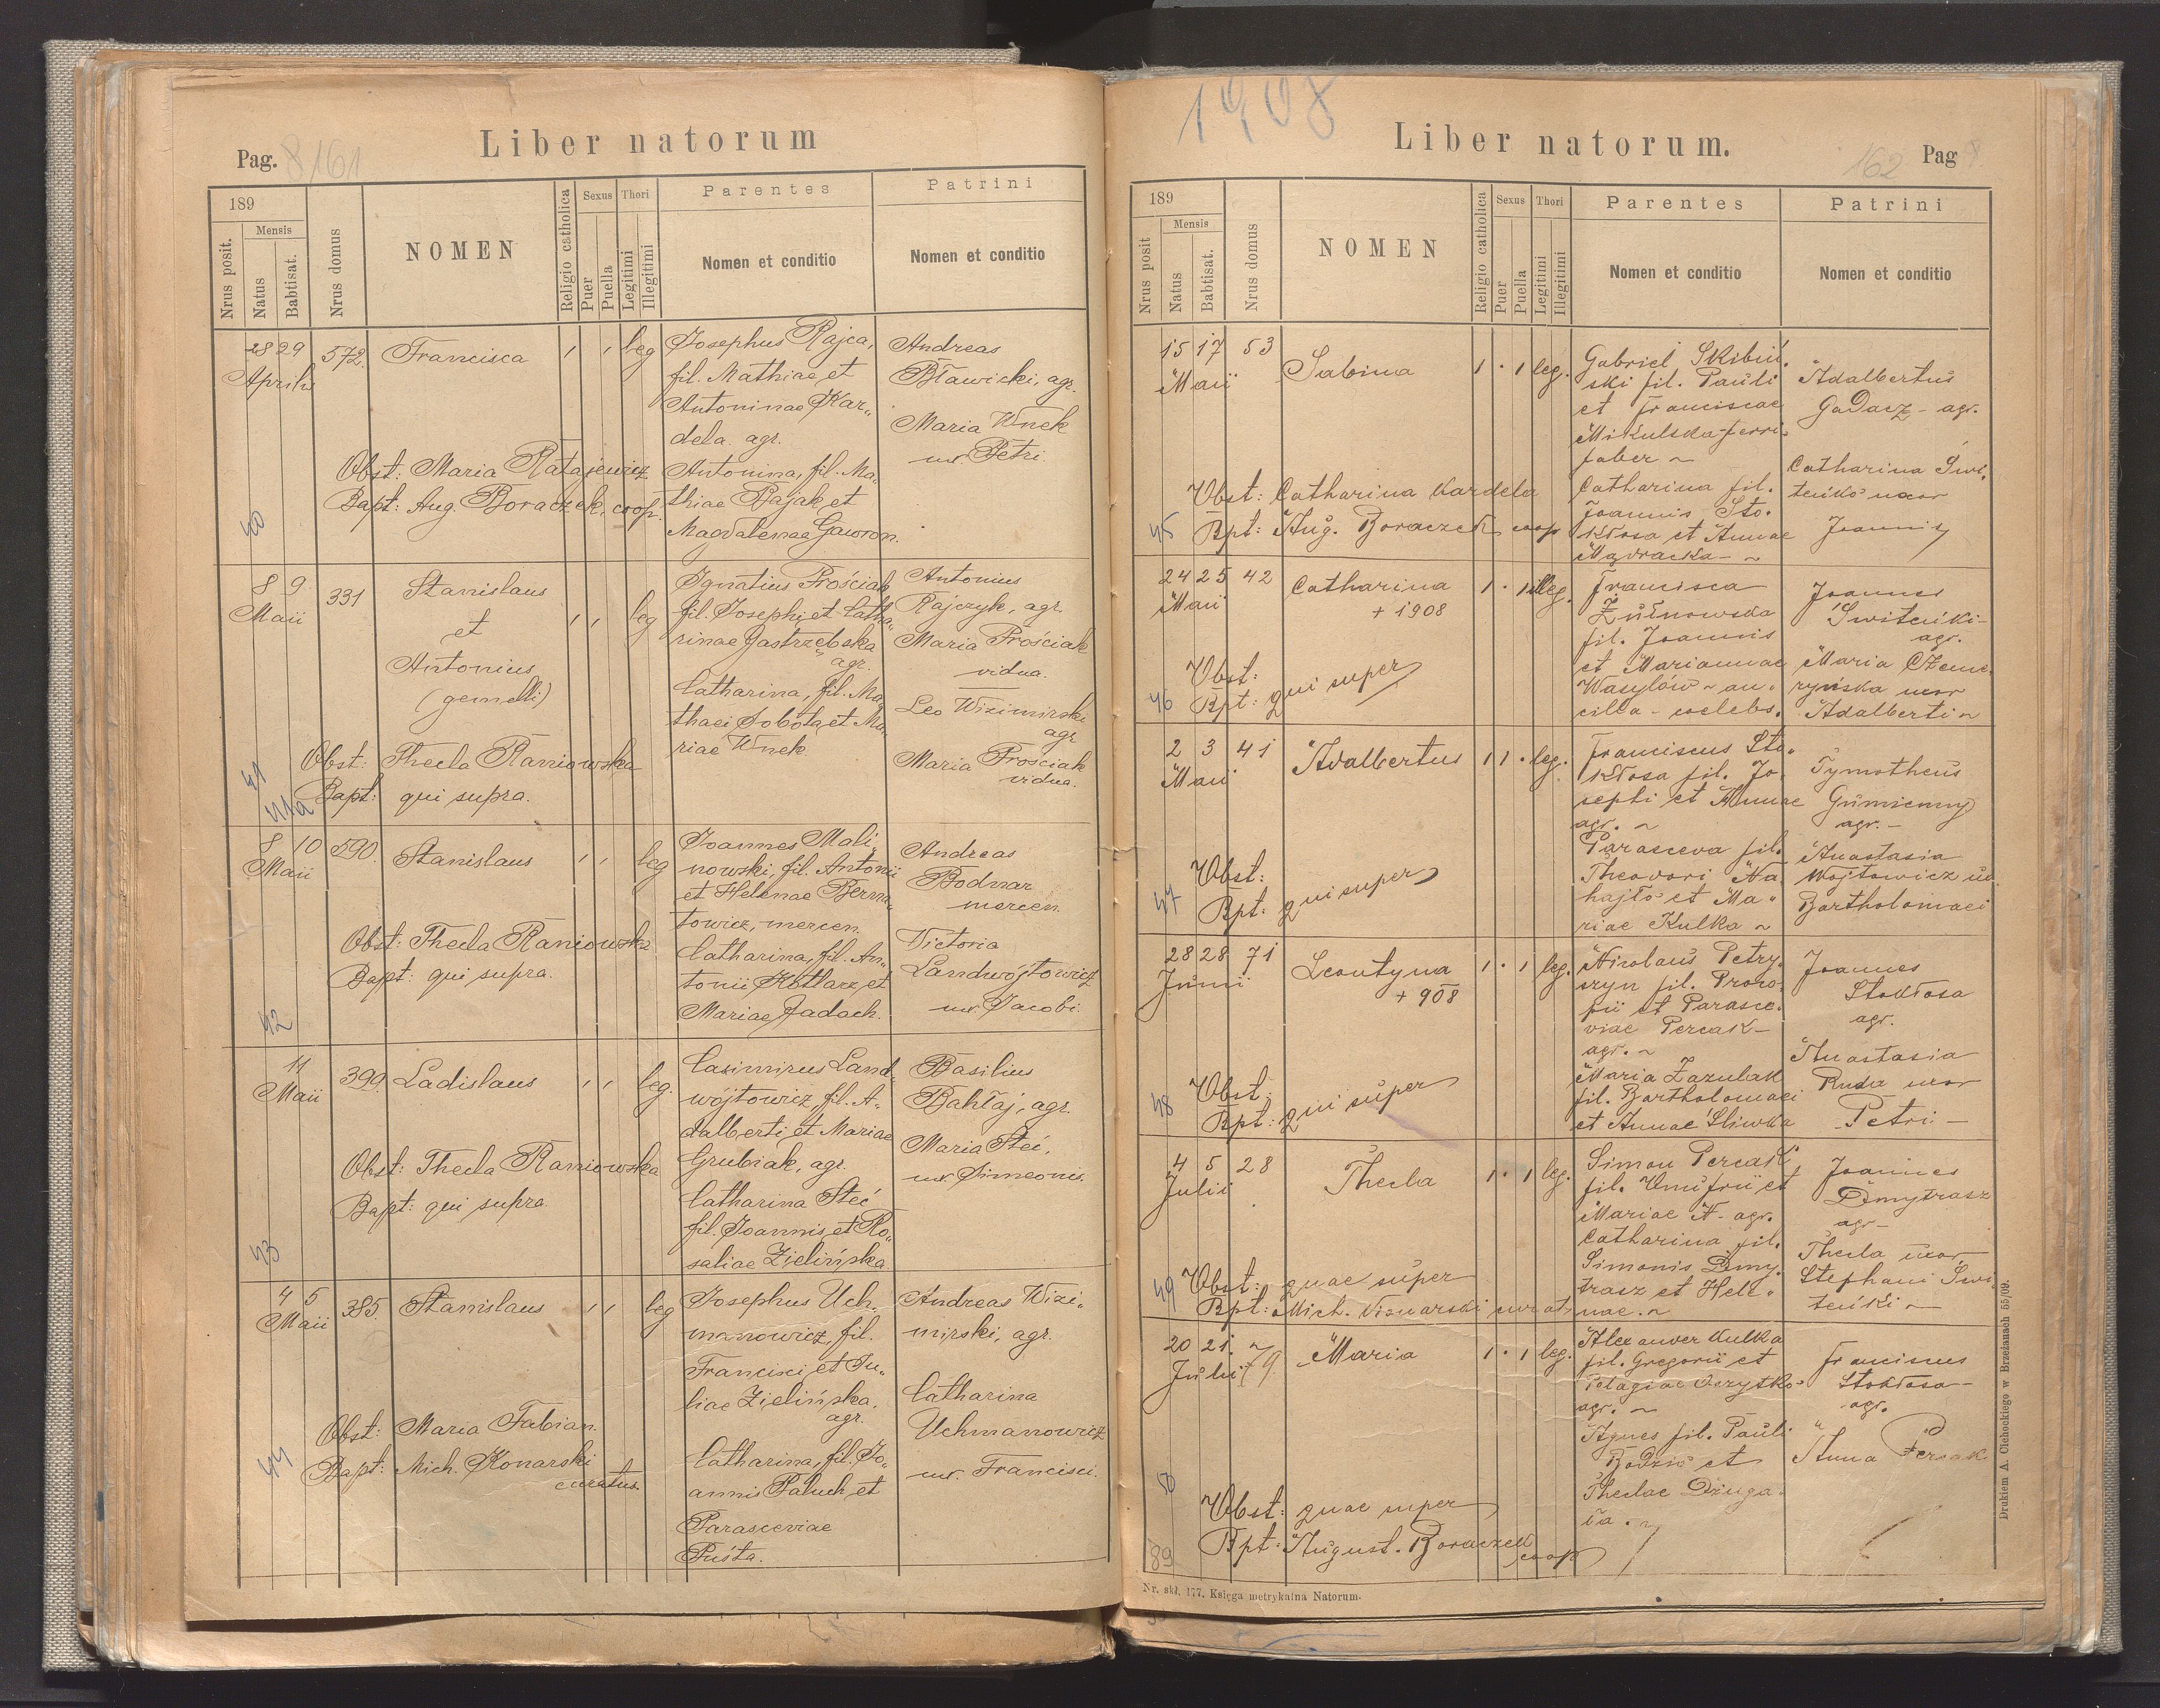 Pag. 8/161
Liber natorum
189
Nrus posit.
Mensis
Natus
Babtisat.
Nrus domus
NOMEN
Religio catholica
Sexus
Puer
Puella
Thori
Legitimi
Illegitimi
Parentes
Nomen et conditio
Patrini
Nomen et conditio
28 29
Aprilis
572.
Francisca
1 1 leg
Josephus Rajca,
fil. Mathiae et
Antoninae Kar„
dela. agr.
Antonina, fil. Ma„
thiae Pająk et
Magdalenae Gawron.
Andreas
Bławicki, agr.
Maria Wnęk
ux. Petri.
Obst: Maria Ratajewicz
Bapt: Aug. Boraczek, coop.
40
8 9
Maii
331
Stanislaus
et
Antonius
(gemelli)
1 1 leg
Ignatius Prościak
fil. Josephi et Catha„
rinae Jastrzębska
agr.
Catharina, fil. Ma„
thaei Sobota et Ma„
riae Wnęk.
Antonius
Rajczyk, agr.
Maria Prościak
vidua.
Leo Wizimirski
agr
Maria Prościak
vidua.
Obst: Thecla Raniowska
Bapt: qui supra.
41
41a
8 10
Maii
590.
Stanislaus
1 1 leg
Joannes Mali„
nowski, fil. Antonii
et Helenae Berna„
towicz, mercen.
Catharina, fil. An„
tonii Kotlarz et
Mariae Jadach.
Andreas
Bodnar
mercen.
Victoria
Landwójtowicz
ux. Jacobi.
Obst: Thecla Raniowska
Bapt: qui supra.
42
11
Maii
399.
Ladislaus
1 1 leg.
Casimirus Land„
wójtowicz, fil. A„
dalberti et Mariae
Grubiak, agr.
Catharina Steć
fil. Joannis et Ro„
saliae Zielińska.
Basilius
Bahłaj, agr.
Maria Steć,
ux. Simeonis.
Obst: Thecla Raniowska
Bapt: qui supra.
43
4 5
Maii
385.
Stanislaus
1 1 leg
Josephus Uch„
manowicz, fil.
Francisci et Ju„
liae Zielińska.
agr.
Catharina, fil. Jo„
annis Paluch et
Parasceviae
Pusta.
Andreas Wizi„
mirski, agr.
Catharina
Uchmanowicz
ux. Francisci.
Obst: Maria Fabian.
Bapt: Mich. Konarski
curatus.
44
1908
Liber natorum.
162 Pag
189
Nrus posit
Mensis
Natus
Babtisat.
Nrus domus
NOMEN
Religio catholica
Sexus
Puer
Puella
Thori
Legitimi
Illegitimi
Parentes
Nomen et conditio
Patrini
Nomen et conditio
15 17
Maii
53
Sabina
1 · 1 leg.
Gabriel Skibiń.
ski fil. Pauli
et Franciscae
Mikulska ferri.
faber ~
Catharina fil.
Joannis Sto.
kłosa et Annae
Mądracka - ~
Adalbertus
Gadacz - agr.
Catharina Świ.
teńko uxor
Joannis
Obst: Catharina Kardela
Bpt: Aug. Boraczek coop
45
24 25
Maii
42
Catharina
+ 1908
1 · 1 illeg.
Francisca
Żułnowska
fil. Joannis
et Mariannae
Wasylów ~ an.
cilla - coelebs.
Joannes
Świteńki -
agr.
Maria Czeme.
ryńska uxor
Adalberti ~
Obst:
Bpt: qui super
46
2 3
Maii
41
Adalbertus
1 1 · leg.
Franciscus Sto.
kłosa fil. Jo.
sephi et Annae
agr. ~
Parasceva fil.
Theodori Na.
hajło et Ma.
riae Kulka ~
Tymotheus
Gumienny
agr. -
Anastasia
Wojtowicz ux
Bartholomaei
Obst:
Bpt: qui super
47
28 28
Junii
71
Leontyna
+ 908
1 · 1 leg.
Nicolaus Petry.
szyn fil. Proco.
pii et Parasce.
viae Percak -
agr. ~
Maria Zazulak
fil. Bartholomaei
et Annae Śliwka
Joannes
Stokłosa
agr.
Anastasia
Ruda uxor
Petri -
Obst.
Bpt: qui super
48
4 5
Julii
28
Thecla
1 · 1 leg.
Simon Percak
fil. Onufrii et
Mariae N. agr.
Catharina fil.
Simonis Dmy.
trasz et Hele.
nae. ~
Joannes
Dmytrasz
agr -
Thecla uxor
Stephani Świ
teńki ~
Obst: quae super
Bpt: Mich. Konarski curat.
49
20 21.
Julii
79
Maria
1 · 1 leg.
Alexander Kulka
fil. Gregorii et
Pelagiae
agr. ~
Agnes fil. Pauli
Bodzio et
Theclae Długa.
Franciscus
Stokłosa -
agr.
Anna Percak
Obst: quae super
Bpt: August. Boraczek
coop
50
89
Nr. skł. 177. Księga metrykalna Natorum.
Drukiem A. Cichockiego w Brzeżanach 55/09.